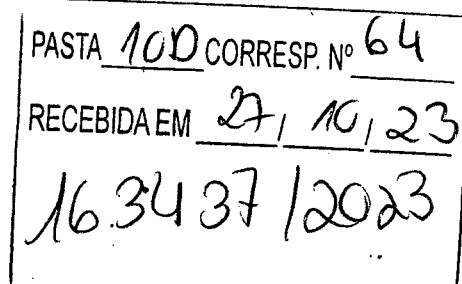 PASTA 10D CORRESP. Nº 64
RECEBIDA EM 27, 10, 23
16.3437/2023